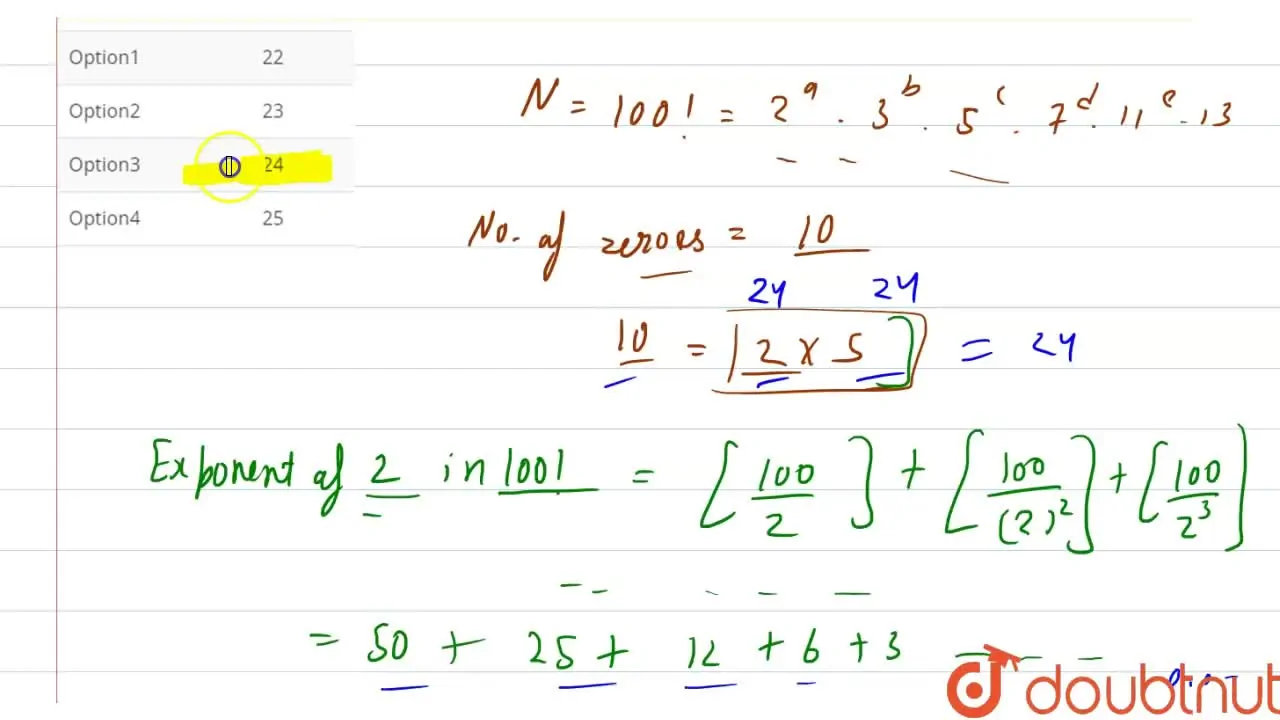 Option1 22
Option2 23
Option3 24
Option4 25
N = 100! = 2^a . 3^b . 5^c . 7^d . 11^e . 13
No. of zeroes = 10
24 24
10 = [2 × 5] = 24
Exponent of 2 in 100! = [100/2] + [100/(2)^2] + [100/2^3]
= 50 + 25 + 12 + 6 + 3
doubtnut